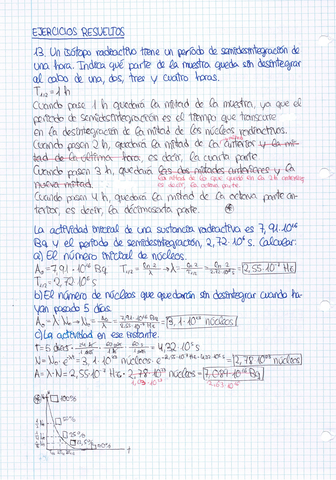 EJERCICIOS RESUELTOS
13. Un isótopo radiactivo tiene un período de semidesintegración de
una hora. Indica qué parte de la muestra queda sin desintegrar
al cabo de una, dos, tres y cuatro horas.
T₁/₂ = 1 h
Cuando pase 1 h quedará la mitad de la muestra, ya que el
período de semidesintegración es el tiempo que transcurre
en la desintegración de la mitad de los núcleos radiactivos.
Cuando pasen 2 h, quedará la mitad de la anterior y la mi-
tad de la última hora, es decir, la cuarta parte
Cuando pasen 3 h, quedará las dos mitades anteriores y la
nueva mitad. la mitad de lo que quedó en la 2h anterior,
es decir, la octava parte.
Cuando pasen 4 h, quedará la mitad de la octava parte an-
terior, es decir, la décimosexta parte.
La actividad inicial de una sustancia radiactiva es 7,91·10¹⁶
Bq y el período de semidesintegración, 2,72·10⁶ s. Calcular:
a) El número inicial de núcleos.
A₀ = 7,91·10¹⁶ Bq T₁/₂ = ln 2/λ → λ = ln 2/T₁/₂ = ln 2/2,72·10⁶ s = 2,55·10⁻⁷ Hz
T₁/₂ = 2,72·10⁶ s
b) El número de núcleos que quedarán sin desintegrar cuando ha-
yan pasado 5 días.
A₀ = λ·N₀ → N₀ = A₀/λ = 7,91·10¹⁶ Bq/2,55·10⁻⁷ Hz = 3,1·10²³ núcleos
c) La actividad en ese instante.
t = 5 días · 24 h/1 día · = 4,32·10⁵ s
N = N₀·e⁻λt = 3,1·10²³ núcleos · = 2,78·10²³ núcleos
A = λ·N = 2,55·10⁻⁷ Hz · 2,78·10²³ núcleos = 7,089·10¹⁶ Bq
100%
50%
25%
12,5%
t